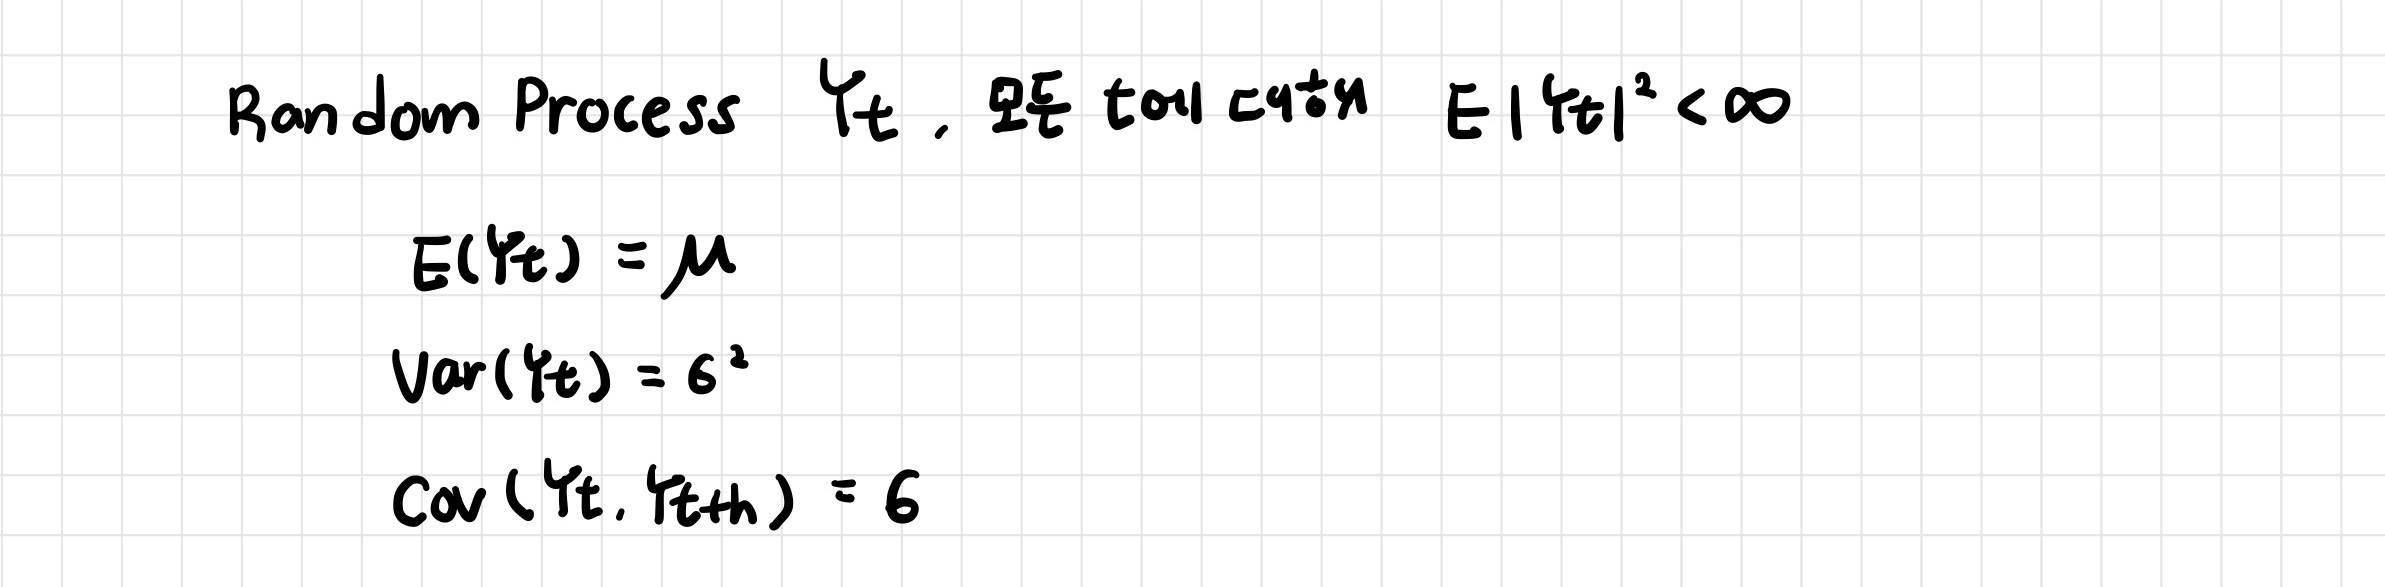 Random Process Yt, 모든 t에 대하여 E|Yt|² < ∞
E(Yt) = μ
Var(Yt) = σ²
Cov(Yt, Yt+h) = σ